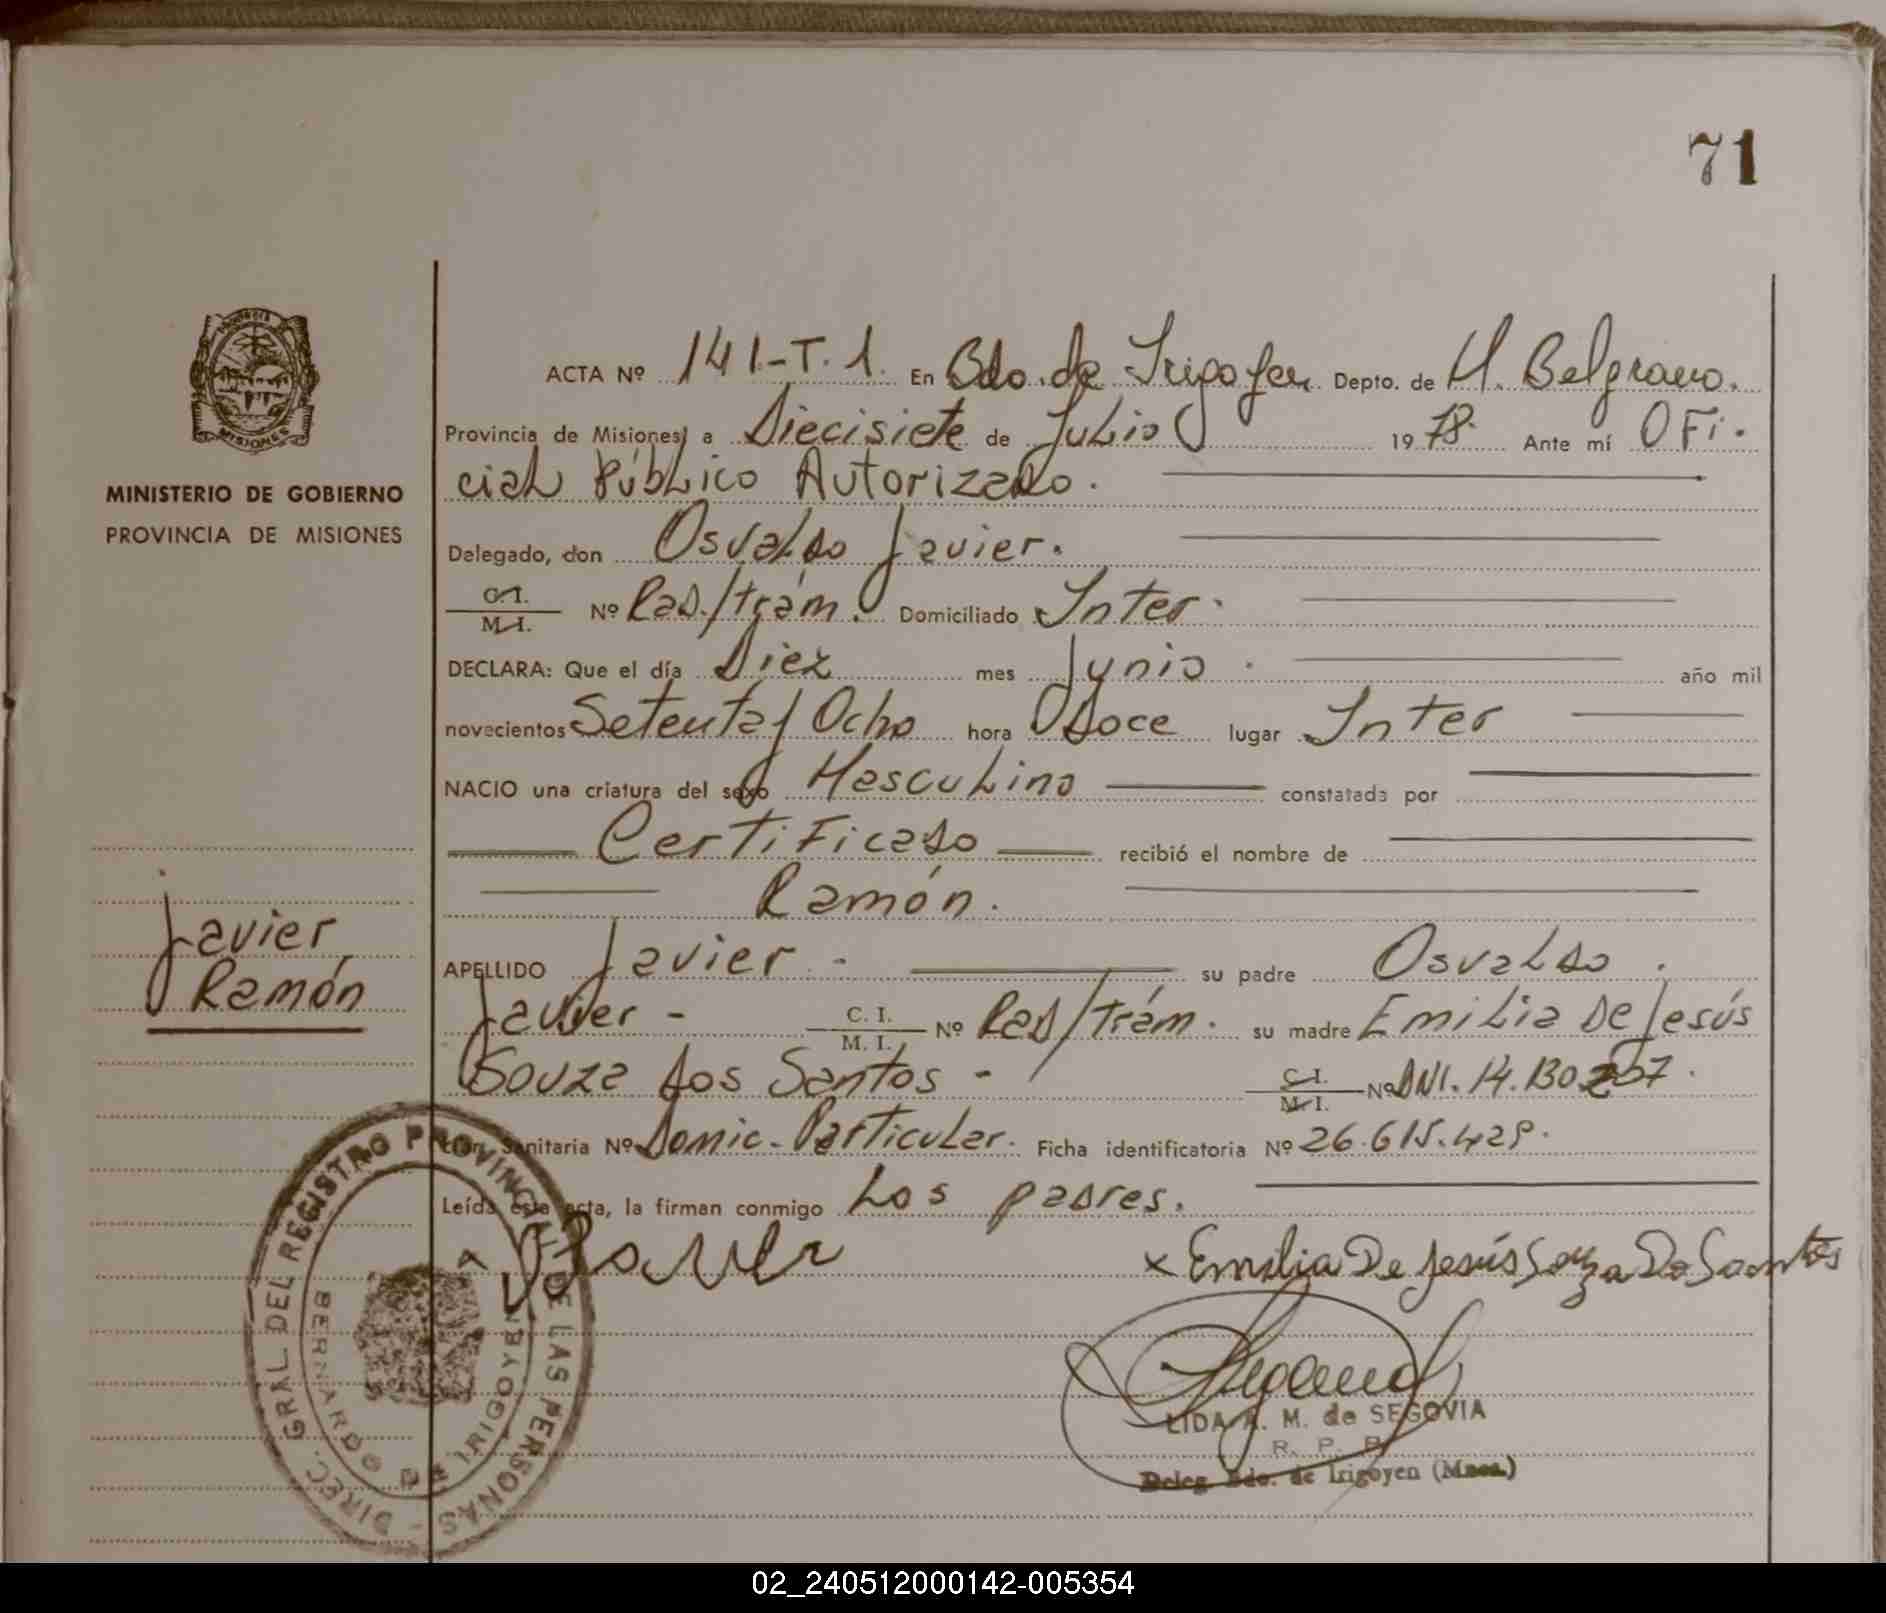 71
PROVINCIA
MISIONES
MINISTERIO DE GOBIERNO
PROVINCIA DE MISIONES
ACTA Nº 141-T.1. En Bdo. de Irigoyen Depto. de M. Belgrano.
Provincia de Misiones, a Diecisiete de Julio 1978. Ante mí Ofi.
cial Público Autorizado.
Delegado, don Osvaldo Javier.
C.I.
M.I. Nº Rad./trám. Domiciliado Inter.
DECLARA: Que el día Diez mes Junio. año mil
novecientos Setenta y Ocho hora Doce lugar Inter
NACIO una criatura del sexo Masculino constatada por
Certificado recibió el nombre de
Ramón.
Javier
Ramón
APELLIDO Javier - su padre Osvaldo.
Javier - C. I.
M. I. Nº Rad/trám. su madre Emilia De Jesús
Souza dos Santos - C.I.
M.I. Nº DNI. 14.130.
Sanitaria Nº Domic. Particular. Ficha identificatoria Nº 26.615.429.
Leída esta acta, la firman conmigo Los padres.
x Emilia De Jesús Souza Do Santos
LIDA A. M. de SEGOVIA
R. P. P.
Deleg. Bdo. de Irigoyen (Mnes.)
DIREC. GRAL DEL REGISTRO PROVINCIAL DE LAS PERSONAS -
BERNARDO DE IRIGOYEN
02_240512000142-005354